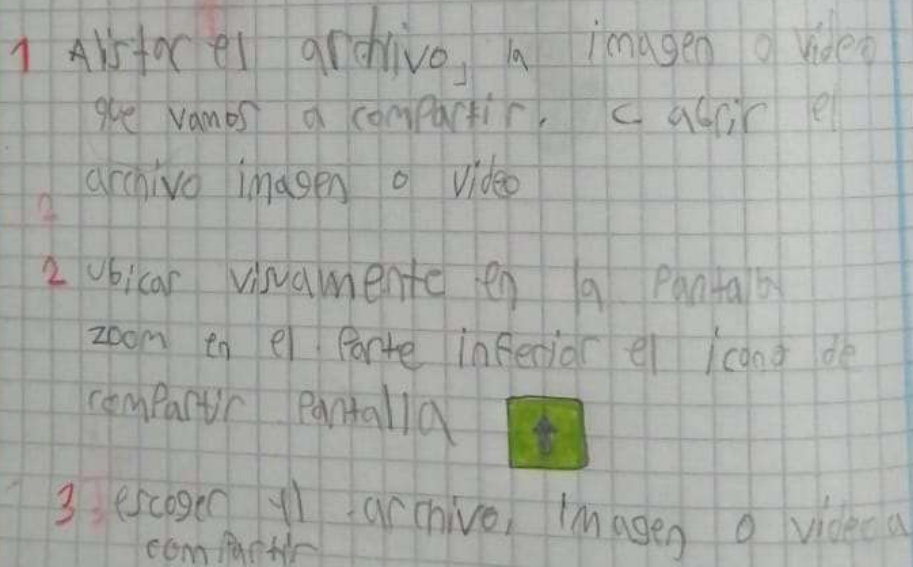 1 Alistar el archivo, la imagen o video
que vamos a compartir. C abrir el
archivo imagen o video
2
2 ubicar visuamente en la Pantalla
zoom en el Parte inferior el icono de
compartir Pantalla
3 escoger yl archivo, imagen o video a
compartir